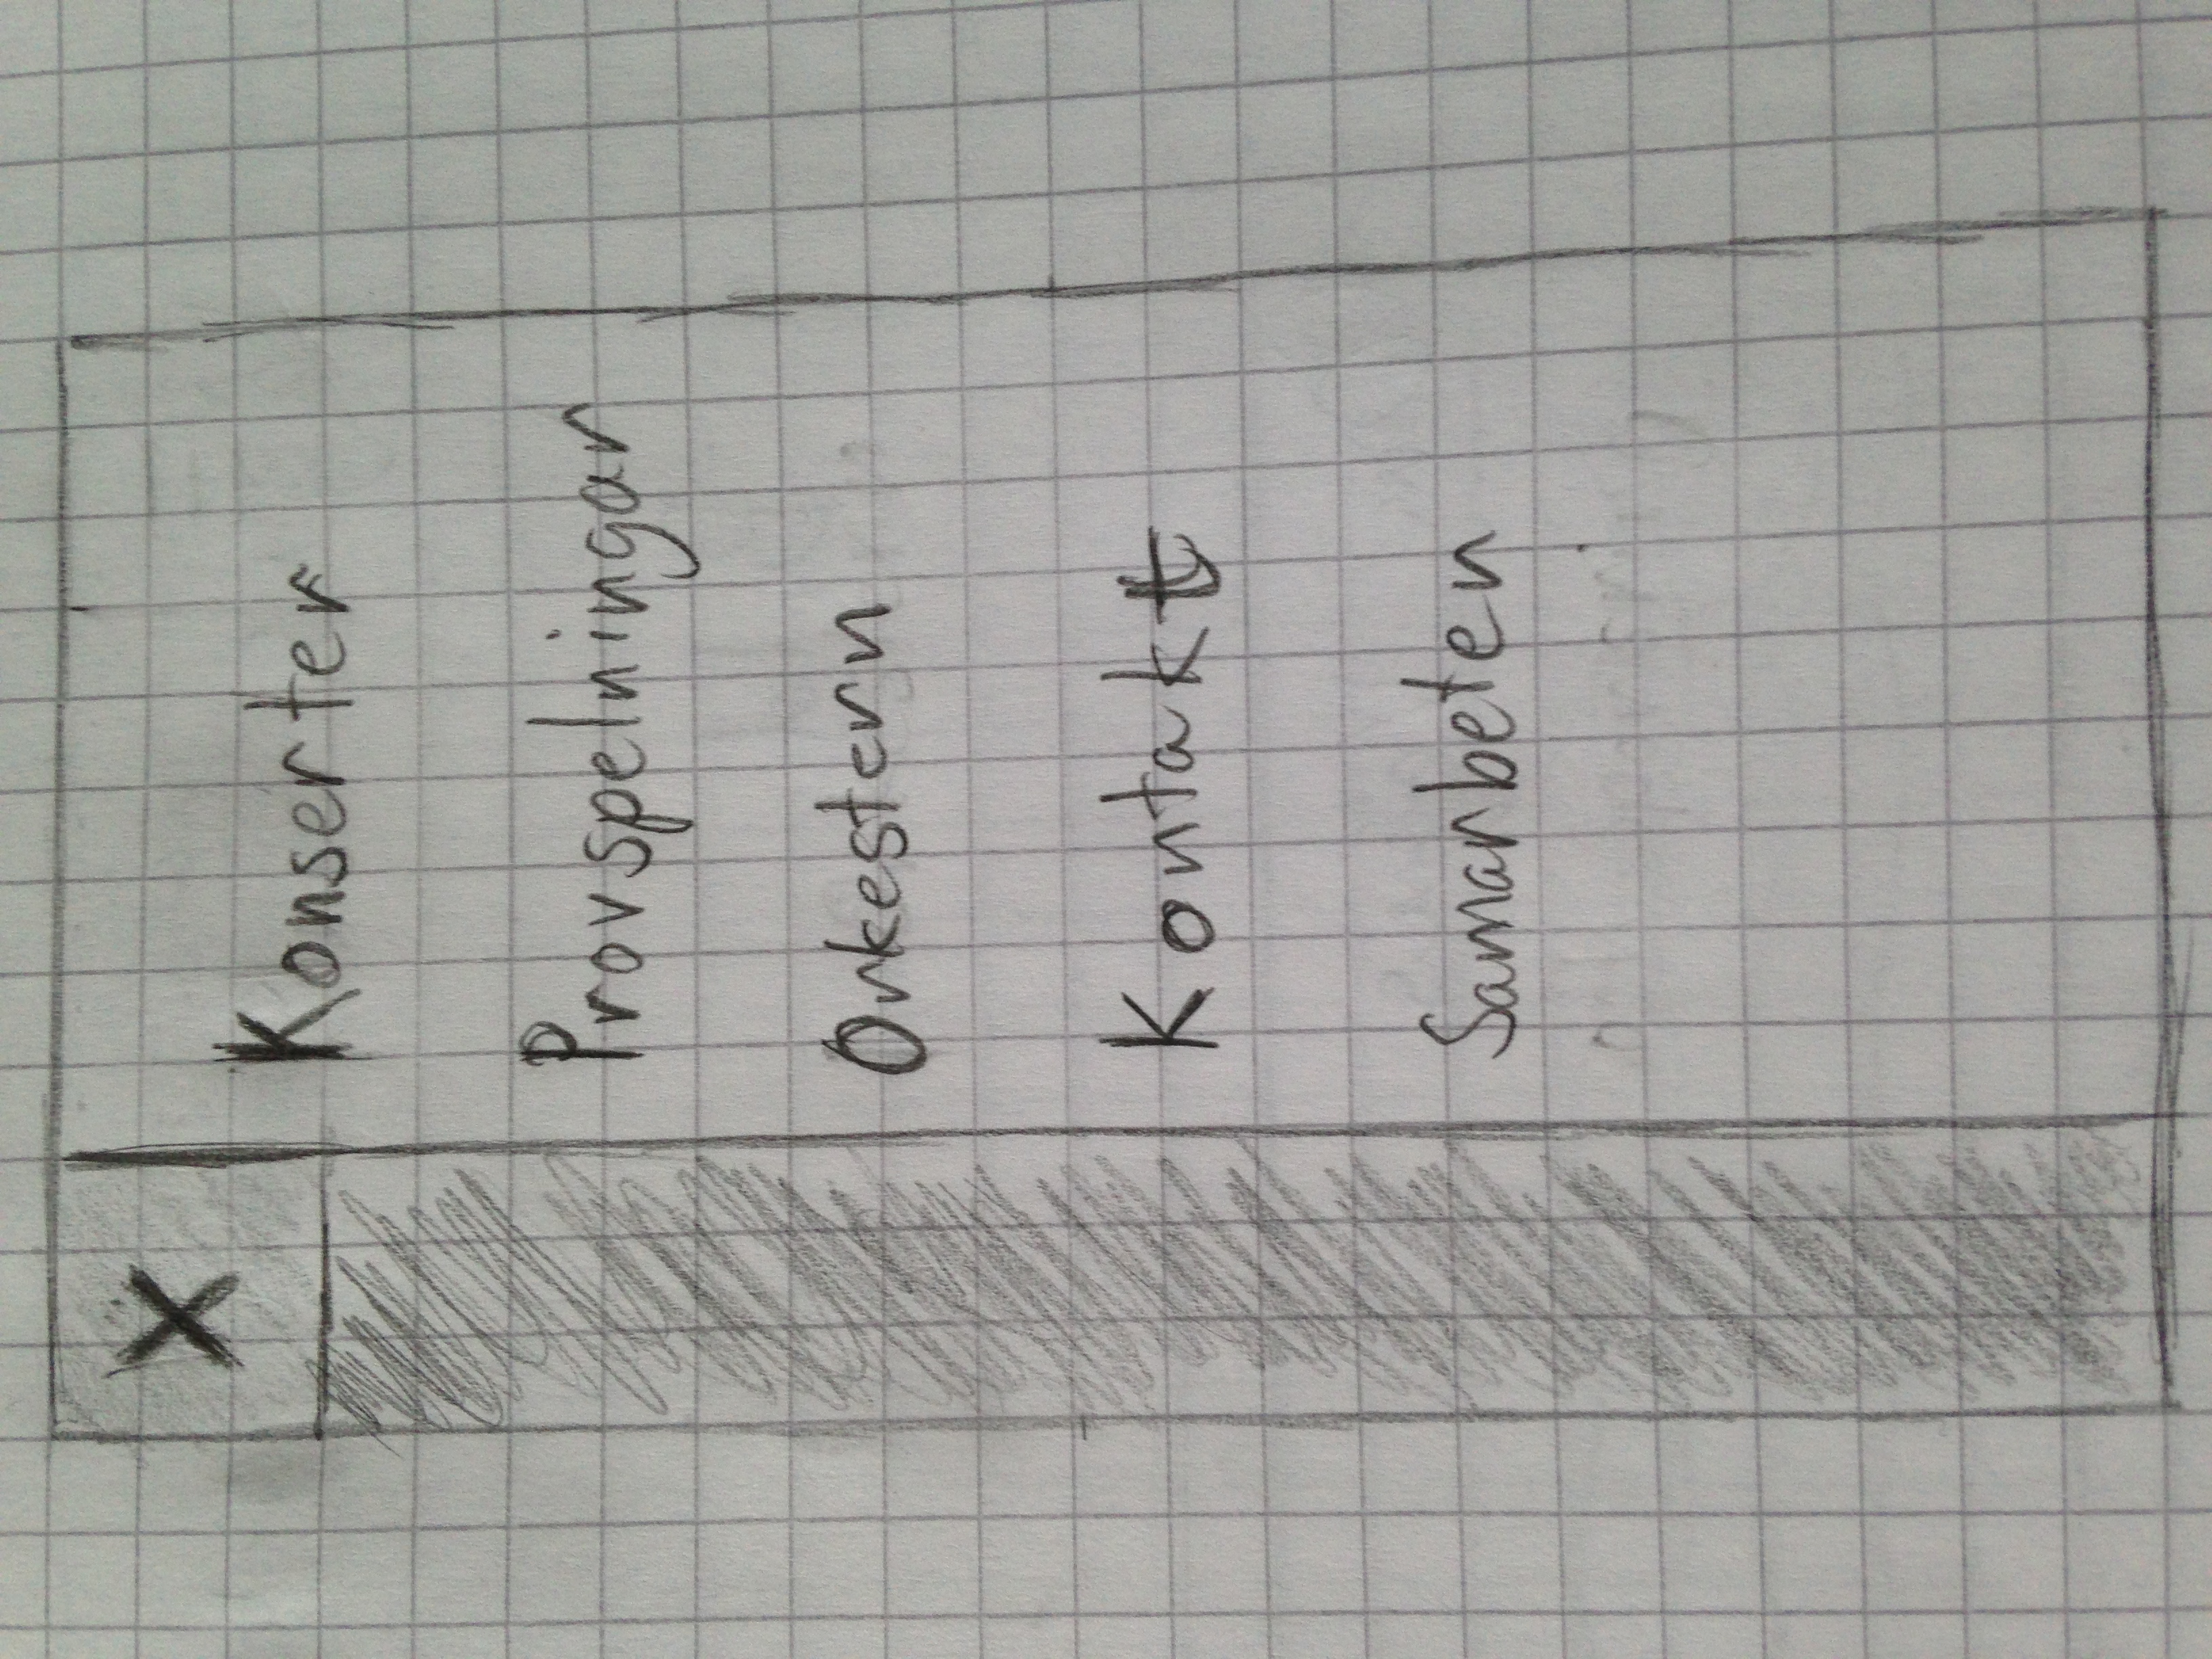 X
Konserter
Provspelningar
Orkestern
Kontakt
Samarbeten